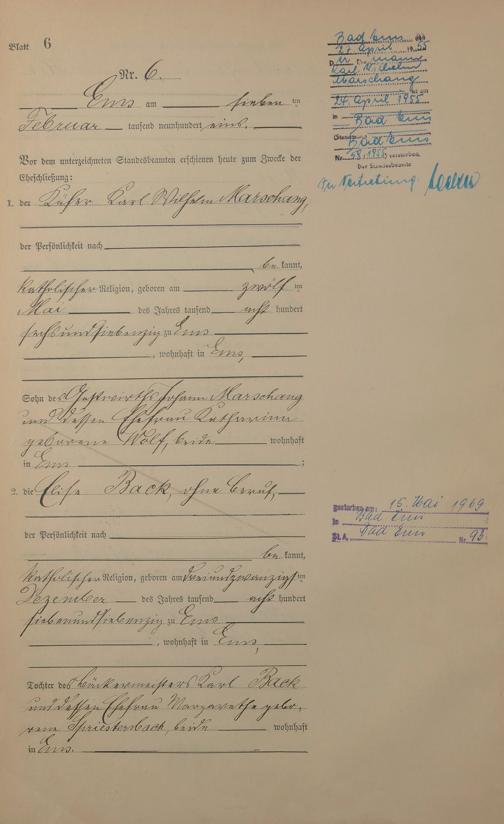 Blatt 6
Nr. 6.
Ems am sieben ten
Februar tausend neunhundert eins.
Vor dem unterzeichneten Standesbeamten erschienen heute zum Zwecke der
Eheschließung:
1. der Küfer Karl Wilhelm Marschang,
der Persönlichkeit nach
be kannt,
katholischer Religion, geboren am zwölf ten
Mai des Jahres tausend acht hundert
sechsundsiebenzig zu Ems
, wohnhaft in Ems,
Sohn des Gastwirths Johann Marschang
und dessen Ehefrau Katharina
geborene Wolf, beide wohnhaft
in Ems ;
2. die Elise Back, ohne Beruf,
der Persönlichkeit nach
be kannt,
katholischer Religion, geboren am dreiundzwanzigsten
Dezember des Jahres tausend acht hundert
siebenundsiebenzig zu Ems
, wohnhaft in Ems,
Tochter des Bäckermeisters Karl Back
und dessen Ehefrau Margarethe gebo-
rene Spriestersbach, beide wohnhaft
in Ems.
Bad Ems, den
27. April 1955
D Ehemann
Karl Wilhelm
Marschang
ist am
24. April 1955
in Bad Ems
Bad Ems
Nr. 58/1955 verstorben.
Der Standesbeamte
In Vertretung
gestorben am: 15. Mai 1969
in Bad Ems
St. A. Bad Ems Nr. 95